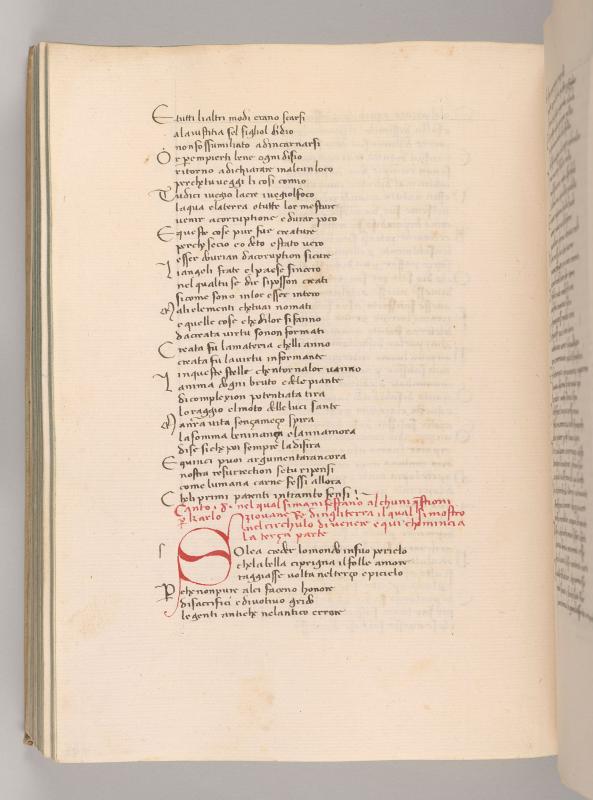 E tutti lialtri modi erano scarsi
ala iustitia sel figliol didio
nonfossumiliato adincarnarsi
Or perempierti bene ogni disio
ritorno adichiarare inalcunloco
perchetu veggi li cosi comio
Tu dici iuegio laere iuegiolfoco
laqua elaterra etutte lor mesture
venir acorruptione edurar poco
E queste cose pur fur creature
perch secio eo deto estato vero
esser dovrian dacoruption sicure
Li angeli frate elpaese sincero
nel qualtu se dir siposson creati
sicome sono inlor esser intero
Mali elementi chetuai nomati
e quelle cose chedilor sifanno
dacreata virtu sonon formati
Creata fu lamateria chelli anno
creata fu lavirtu informante
inqueste stelle chentornalor vanno
Lanima dogni bruto e dele piante
dicomplexion potentiata tira
loraggio elmoto delle luci sante
Manra vita sença meço spira
lasomma beninança elannamora
dise siche poi sempre ladisira
E quinci puoi argumentarancora
nostra resurrection setu ripensi
come lumana carne fessi allora
Cheli primi parenti intrambo fensi
Canto .8. nel qual simanifestano alchuni questioni
per karlo giovane Re dingliterra il qual si mostro
nel circhulo divenere e qui chomincia
la terça parte
Solea creder lomondo insuo periclo
chelabella ciprigna ilfolle amore
raggiasse volta nelterço epiciclo
Perchenonpure alei faceno honore
disacrifici e divotivo grido
le genti antiche nelantico errore